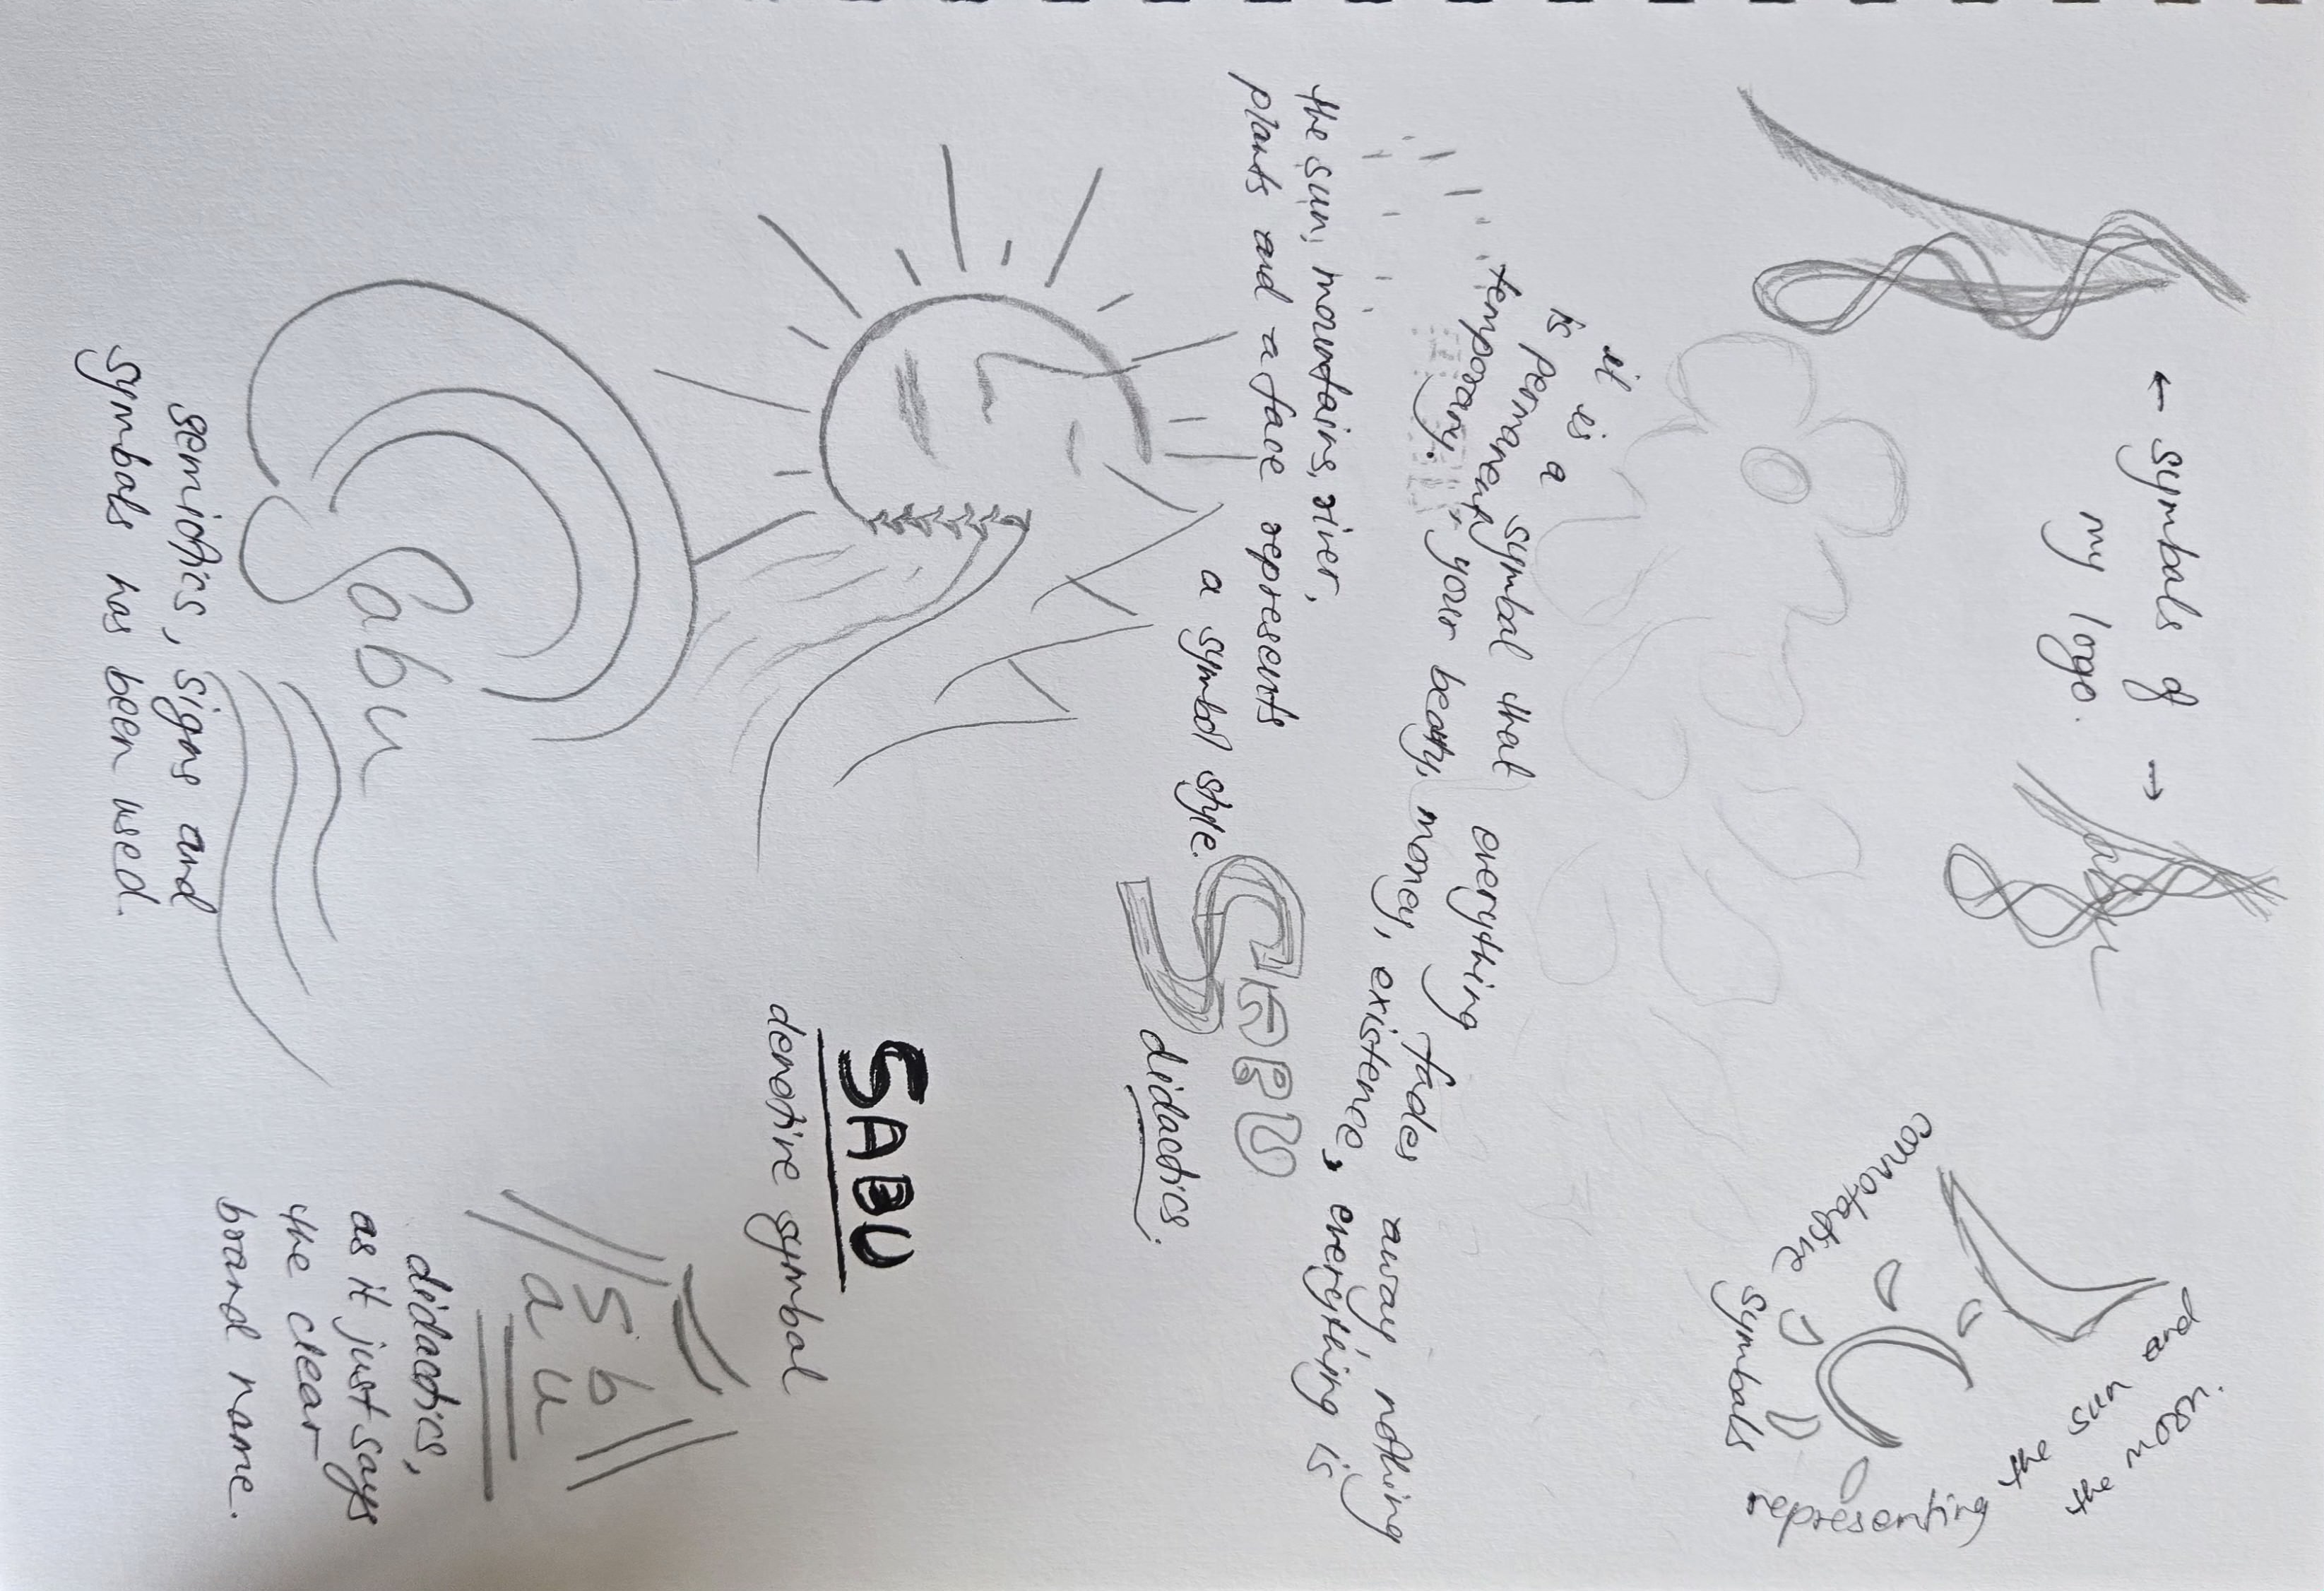 ← symbols of →
my logo.
connotative
symbols
representing
the sun and
the moon.
it is a symbol that everything fades away, nothing
is permanent, your beauty, money, existence, everything is
temporary.
the sun, mountains, river,
plants and a face represents
a symbol style.
SABU
didactics.
SABU
denotive symbol
Sabu
semiotics, signs and
symbols has been used.
S b
a u
didactics,
as it just says
the clear
brand name.